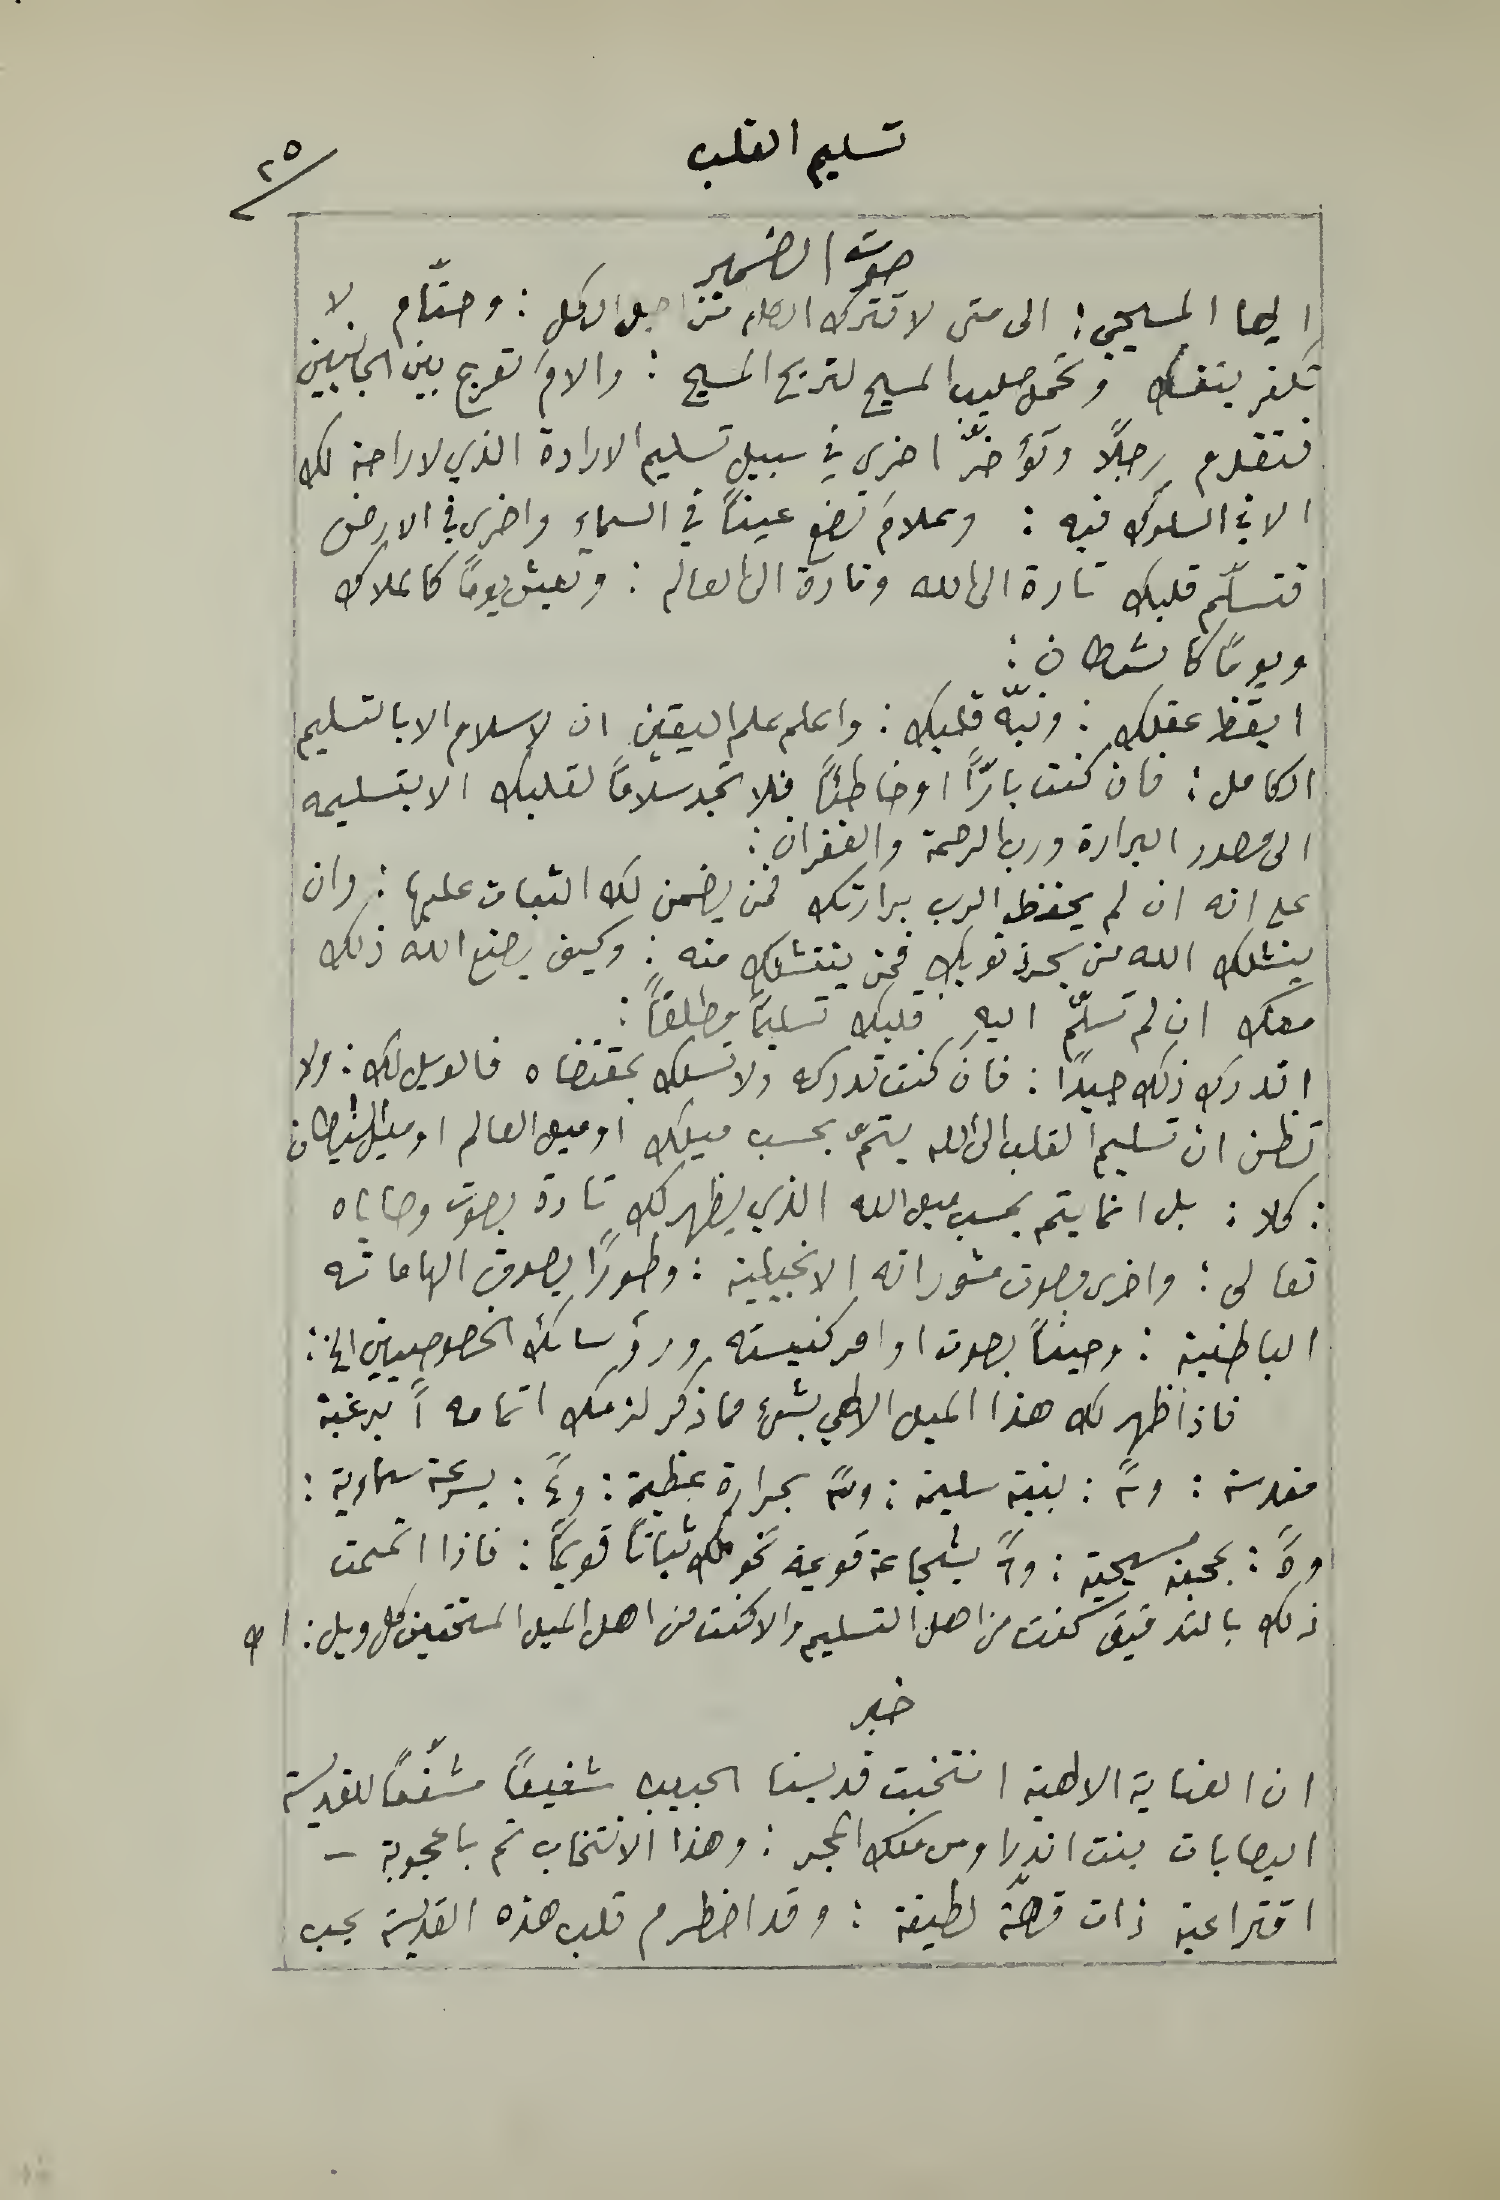 تسليم القلب
٢٥
صوت الضمير
ايها المسيحي: الى متى لا تترك الكل من اجل الكل: وحتّام لا
تكفر بنفسك وتحمل صليب المسيح لتربح المسيح: والامَ تعرج بين الجانبين
فتقدم رجلًا وتؤخرّ اخرى في سبيل تسليم الارادة الذي لا راحة لك
الا في السلوك فيه: وعلامَ تضع عيناً في السماء واخرى في الارض
فتسلّم قلبك تارة الى الله وتارة الى العالم: وتعيش يوماً كالملاك
ويوماً كالشيطان:
ايقّظ عقلك: ونبّه قلبك: واعلم علم اليقين ان لا سلام الا بالتسليم
الكامل: فان كنت بارّاً او خاطئاً فلا تجد سلاماً لقلبك الا بتسليمه
الى مصدر البرارة ورب الرحمة والغفران:
على انه ان لم يحفظ الرب برارتك فمن يضمن لك الثبات عليها: وان
ينشلك الله من بحر ذنوبك فمن ينتشلك منه: وكيف يصنع الله ذلك
معك ان لم تسلّم اليه قلبك تسليماً مطلقاً:
اتدرك ذلك جيدًا: فان كنت تدركه ولا تسلك بمقتضاه فالويل لك: ولا
تظن ان تسليم القلب الى الله يتمّ بحسب ميلك او ميل العالم او ميل الشيطان
: كلا: بل انما يتم بحسب ميل الله الذي يظهر لك تارة بصوت وصاياه
تعالى: واخرى بصوت مشوراته الانجيلية: وطورًا بصوت الهاماته
الباطنية: وحيناً بصوت اوامر كنيسته ورؤسائك الخصوصيين الخ:
فاذا ظهر لك هذا الميل الالهي بشيءٍ مما ذكر لزمك اتمامه اً برغبة
مقدسة: و٢ً: بنية سليمة: و٣ً بحرارة عظيمة: و٤ً: بسرعة سماوية:
و٥ً: بمحبة مسيحية: و٦ً بشجاعة قويمة تخولك ثباتاً قويماً: فاذا اتممت
ذلك بالتدقيق كنت من اهل التسليم والا كنت من اهل الميل المستحقين كل ويل: اھ
خبر
ان العناية الالهية انتخبت قديسنا الحبيب شفيعاً مشفّعاً للقديسة
اليصابات بنت اندراوس ملك المجر: وهذا الانتخاب تم باعجوبة –
اقتراعية ذات قصّة لطيفة: وقد اضطرم قلب هذه القديسة بحب